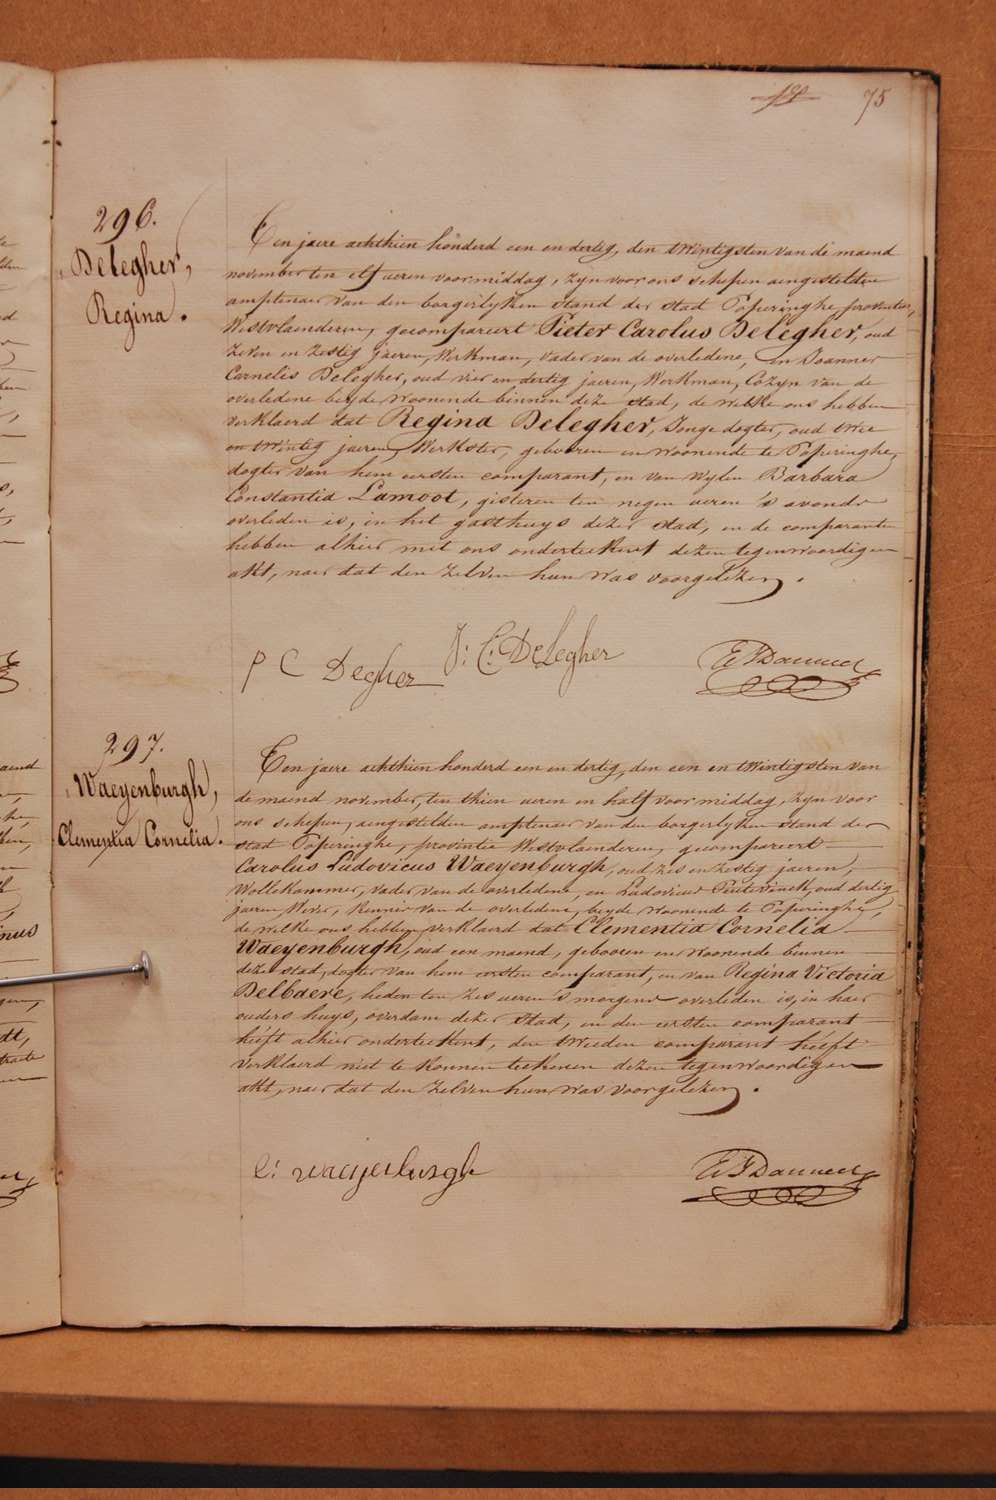 75
296.
Delegher,
Regina.
Een jaere achthien honderd een en dertig, den twintigsten van de maend
november ten elf ueren voormiddag, zyn voor ons schepen aengestelden
amptenaer van den borgerlyken stand der stad Poperinghe, provintie,
Westvlaenderen, gecompareert Pieter Carolus Delegher, oud
zeven en zestig jaeren, Werkman, vader van de overledene, en Joannes
Cornelis Delegher, oud vier en dertig jaeren, Werkman, Cozyn van de
overledene beyde woonende binnen deze stad, de welke ons hebben
verklaerd dat Regina Delegher, Jonge dogter, oud twee
en twintig jaeren, Werkster, gebooren en woonende te Poperinghe,
dogter van hem eersten comparant, en van wylen Barbara
Constantia Lamoot, gisteren ten negen ueren 's avonds
overleden is, in het gasthuys dezer stad, en de comparanten
hebben alhier met ons onderteekent dezen tegenwoordigen
akt, naer dat den zelven hun was voorgelezen.
P C Degher J: C: DeLegher
297.
Waeyenburgh,
Clementia Cornelia.
Een jaere achthien honderd een en dertig, den een en twintigsten van
de maend november, ten thien ueren en half voormiddag, zyn voor
ons schepen, aengestelden amptenaer van den borgerlyken stand der
stad Poperinghe, provintie Westvlaenderen, gecompareert
Carolus Ludovicus Waeyenburgh, oud zes en zestig jaeren,
Wollekammer, vader van de overledene, en Ludovicus oud dertig
jaeren Wever, Kennis van de overledene, beyde woonende te Poperinghe,
de welke ons hebben verklaerd dat Clementia Cornelia
Waeyenburgh, oud een maend, gebooren en woonende binnen
deze stad, dogter van hem eersten comparant, en van Regina Victoria
Delbaere, heden ten zes ueren 's morgens overleden is, in haer
ouders huys, overdam dezer stad, en den eersten comparant
heeft alhier onderteekent, den tweeden comparant heeft
verklaerd niet te konnen teekenen dezen tegenwoordigen
akt, naer dat den zelven hun was voorgelezen.
C: waeyenburgh